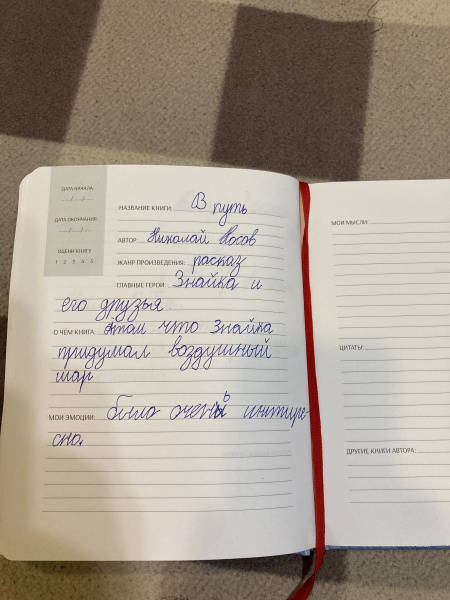 ДАТА НАЧАЛА:
__/__/__
ДАТА ОКОНЧАНИЯ:
__/__/__
ОЦЕНИ КНИГУ
1 2 3 4 5
НАЗВАНИЕ КНИГИ: В путь
АВТОР: Николай Носов
ЖАНР ПРОИЗВЕДЕНИЯ: расказ
ГЛАВНЫЕ ГЕРОИ: Знайка и
его друзья
О ЧЁМ КНИГА: Отом что Знайка
придумал воздушный
шар
МОИ ЭМОЦИИ: было очень интере-
сно.
МОИ МЫСЛИ:
ЦИТАТЫ:
ДРУГИЕ КНИГИ АВТОРА: